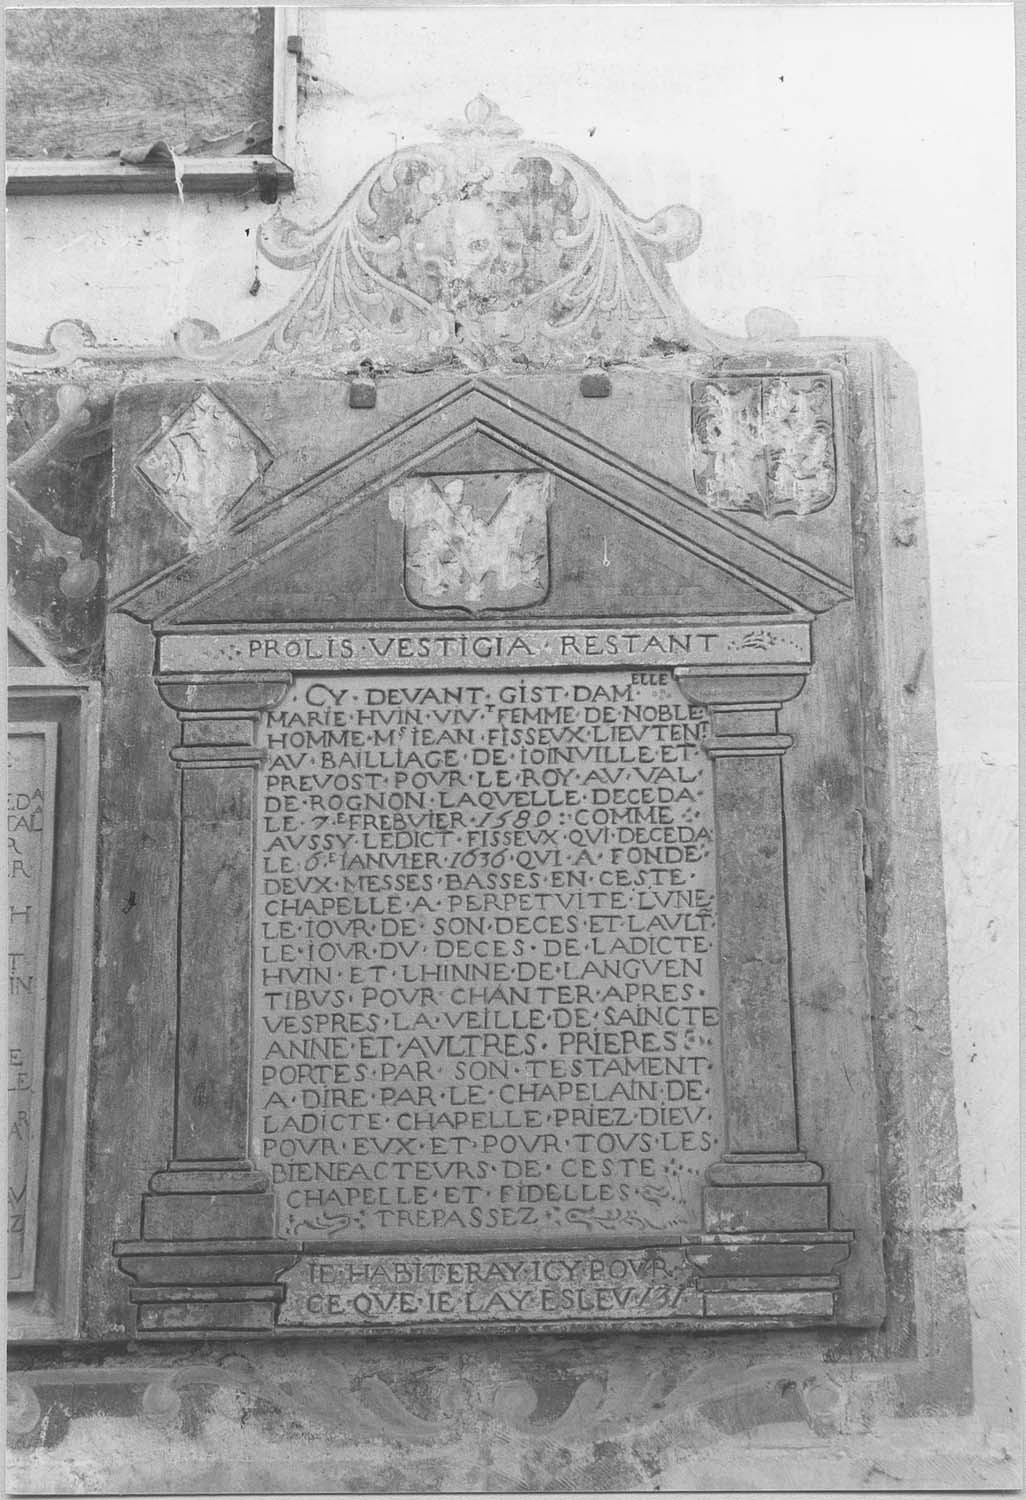 PROLIS·VESTIGIA·RESTANT
CY·DEVANT·GIST·DAM.ELLE
MARIE·HVIN·VIV.T FEMME·DE·NOBLE·
HOMME·M.S IEAN·FISSEVX·LIEVTEN.T
AV·BAILLIAGE·DE·IOINVILLE·ET·
PREVOST·POVR·LE·ROY·AV·VAL·
DE·ROGNON·LAQVELLE·DECEDA·
LE·7.E FREBVIER·1580·:COMME·
AVSSY·LEDICT·FISSEVX·QVI·DECEDA
LE·6.E IANVIER·1636·QVI·A·FONDE·
DEVX·MESSES·BASSES·EN·CESTE·
CHAPELLE·A·PERPETVITE·LVNE·
LE·IOVR·DE·SON·DECES·ET·LAVLT·
LE·IOVR·DV·DECES·DE·LADICTE
HVIN·ET·LHINNE·DE·LANGVEN
TIBVS·POVR·CHANTER·APRES·
VESPRES·LA·VEILLE·DE·SAINCTE
ANNE·ET·AVLTRES·PRIERES·
PORTES·PAR·SON·TESTAMENT·
A·DIRE·PAR·LE·CHAPELAIN·DE·
LADICTE·CHAPELLE·PRIEZ·DIEV·
POVR·EVX·ET·POVR·TOVS·LES·
BIENFACTEVRS·DE·CESTE
CHAPELLE·ET·FIDELLES·
TREPASSEZ·
IE·HABITERAY·ICY·POVR
CE·QVE·IE·LAY·ESLEV·131